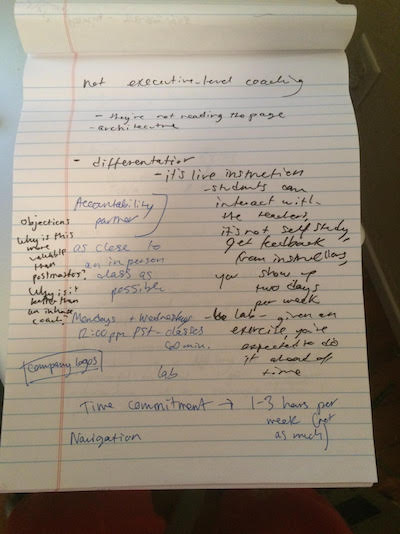 not executive-level coaching
- they're not reading the page
- architecture
- differentiation
- it's live instruction
- students can
interact with
the teachers,
it's not self study,
get feedback
from instructors,
you show up
two days
per week
Accountability
partner
as close to
an in person
class as
possible
Objections
Why is this
more
valuable
than
Why is it
better than
an inhouse
coach?
Mondays + Wednesdays
12:00 pm PST - classes
60 min.
lab - given an
exercise you're
expected to do
it ahead of
time
Company logos
lab
Time commitment → 1-3 hours per
week (not
as much)
Navigation